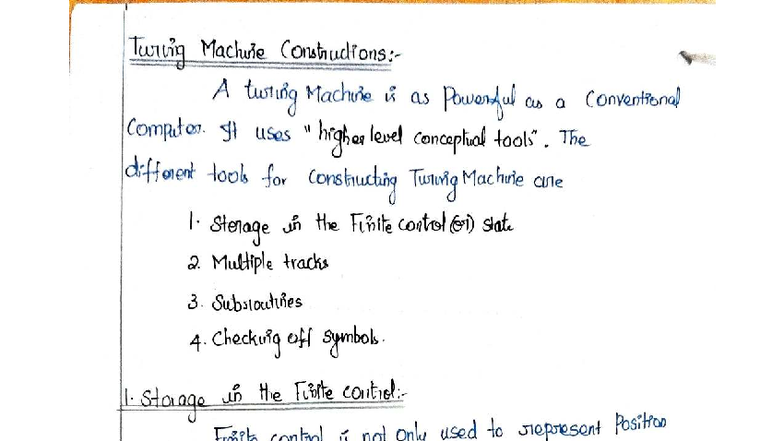 Turing Machine Constructions:-
A turing Machine is as Powerful as a Conventional
Computer. It uses "higher level conceptual tools". The
different tools for constructing Turing Machine are
1. Storage in the Finite control (or) state
2. Multiple tracks
3. Subroutines
4. Checking off symbols.
1. Storage in the Finite control:-
Finite control is not only used to represent Position